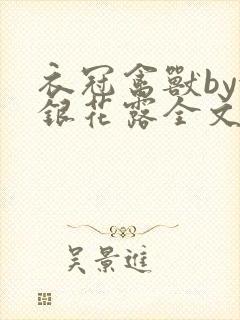 衣冠禽獸by
銀花露全文
吴景進